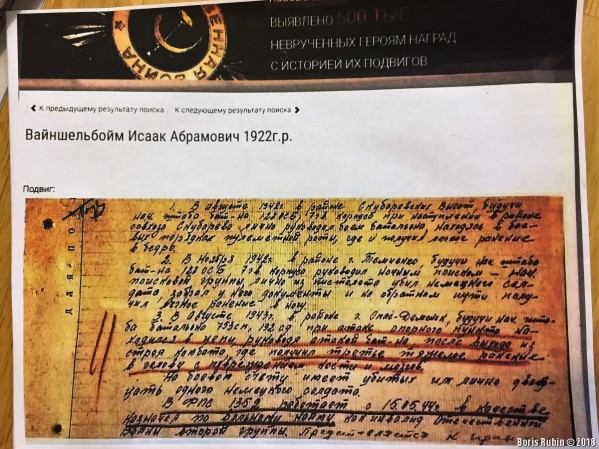 ВЕННАЯ ВОЙНА
ВЫЯВЛЕНО 500 ТЫС
НЕВРУЧЕННЫХ ГЕРОЯМ НАГРАД
С ИСТОРИЕЙ ИХ ПОДВИГОВ
К предыдущему результату поиска К следующему результату поиска
Вайншельбойм Исаак Абрамович 1922г.р.
Подвиг:
ДЛЯ ПО
1. В августе 1942г. в районе высот будучи
нач. штаба бат-на 128 ОСБ 7 гв. корпуса при наступлении в районе
совхоза лично руководил боем батальона, находясь в бое-
вых рота, где и получил легкое ранение
в бедро.
2. В Ноябре 1942г. в районе г. будучи нач. штаба
бат-на 128 ОСБ 7 гв. корпуса руководил ночным поиском
поисковой группы, лично из пистолета убил немецкого сол-
дата забрал у него документы и на обратном пути полу-
чил легкое ранение в ногу.
3. В Августе 1943г. в районе г. Спас-Деменск, будучи нач. шта-
ба батальона 753 сп, 192 сд при атаке опорного пункта на-
ходился в цепи руководя атакой бат-на, после выхода из
строя комбата где получил третье тяжелое ранение
в голову с повреждением кости и мозгов.
На боевом счету имеет убитых им лично двад-
цать одного немецкого солдата.
В ФПС 1359 работает с 15.05.44г. в качестве
как инвалид Отечественной
войны второй группы. Представляется к
Boris Rubin © 2018